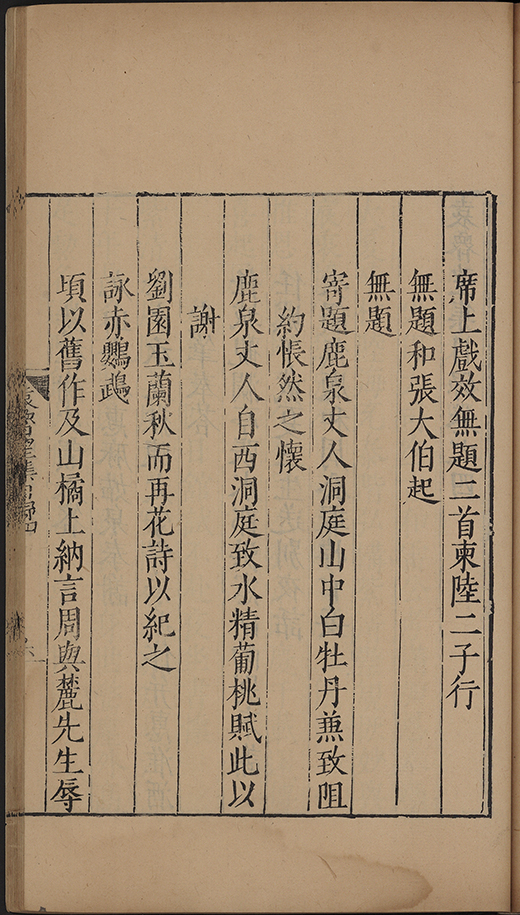 席上戲效無題二首柬陸二子行
無題和張大伯起
無題
寄題鹿泉丈人洞庭山中白牡丹兼致阻
約悵然之懷
鹿泉丈人自西洞庭致水精葡桃賦此以
謝
劉園玉蘭秋而再花詩以紀之
詠赤鸚鵡
頃以舊作及山橘上納言周與麓先生辱